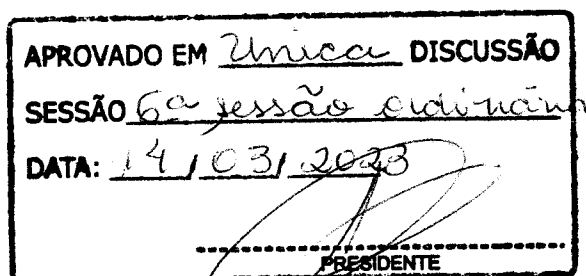 APROVADO EM Unica DISCUSSÃO
SESSÃO 6ª sessão ordinária
DATA: 14 / 03 / 2023
PRESIDENTE